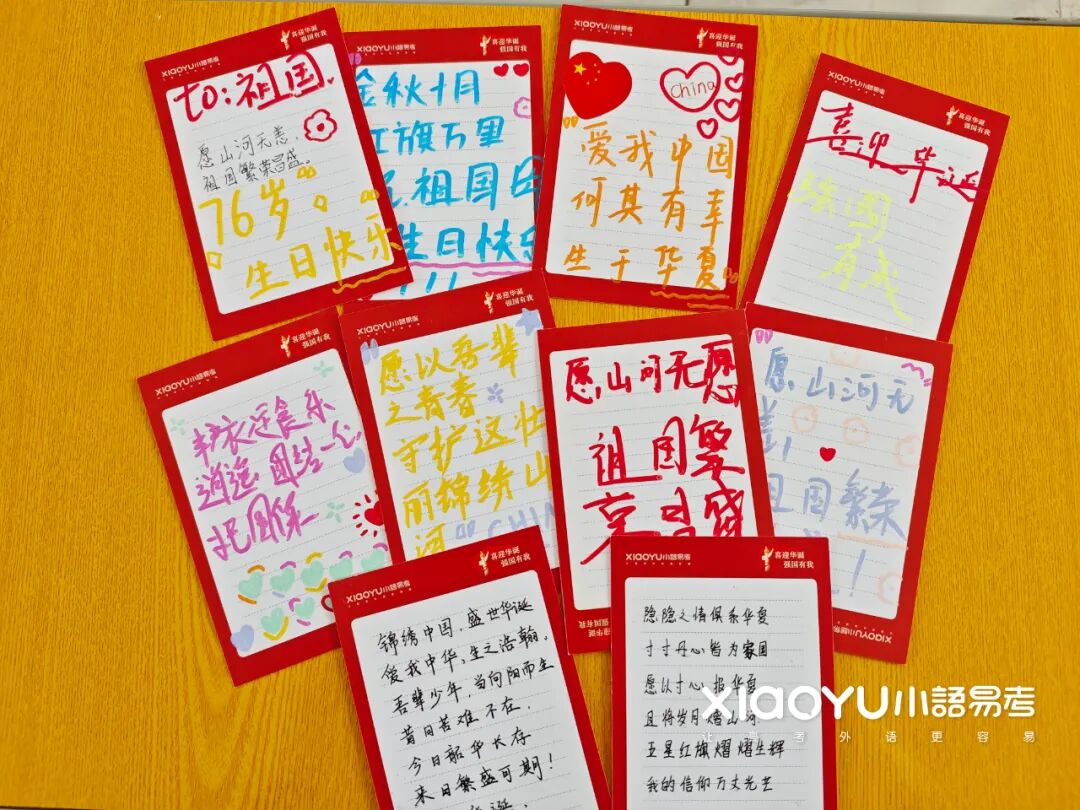 XIAOYU小語易考
喜迎华诞
强国有我
to:祖国.
愿山河无恙,
祖国繁荣昌盛。
76岁
生日快乐
XIAOYU小語易考
喜迎华诞
强国有我
金秋十月
红旗万里
祖国
生日快乐
!!!
XIAOYU小語易考
喜迎华诞
强国有我
China
爱我中国
何其有幸
生于华夏
XIAOYU小語易考
喜迎华诞
强国有我
喜迎华诞
强国
有
XIAOYU小語易考
喜迎华诞
强国有我
丰衣足食乐
逍遥 团结一心
XIAOYU小語易考
喜迎华诞
强国有我
愿以吾辈
之青春
守护这壮
丽锦绣山
河
CHIN
愿山河无
祖国繁
昌盛
喜迎华诞
强国有我
愿山河无
恙,
且国繁荣
!
XIAOYU小語易考
XIAOYU小語易考
喜迎华诞
强国有我
锦绣中国,盛世华诞
爱我中华,生之浩瀚。
吾辈少年,当向阳而生
昔日苦难不在,
今日韶华长存
来日繁盛可期!
华诞,
XIAOYU小語易考
喜迎华诞
强国有我
隐隐之情俱系华夏
寸寸丹心皆为家国
愿以寸心报华夏
且将岁月熠山河
五星红旗熠熠生辉
我的信仰万丈光芒
XIAOYU小語易考
让高考外语更容易